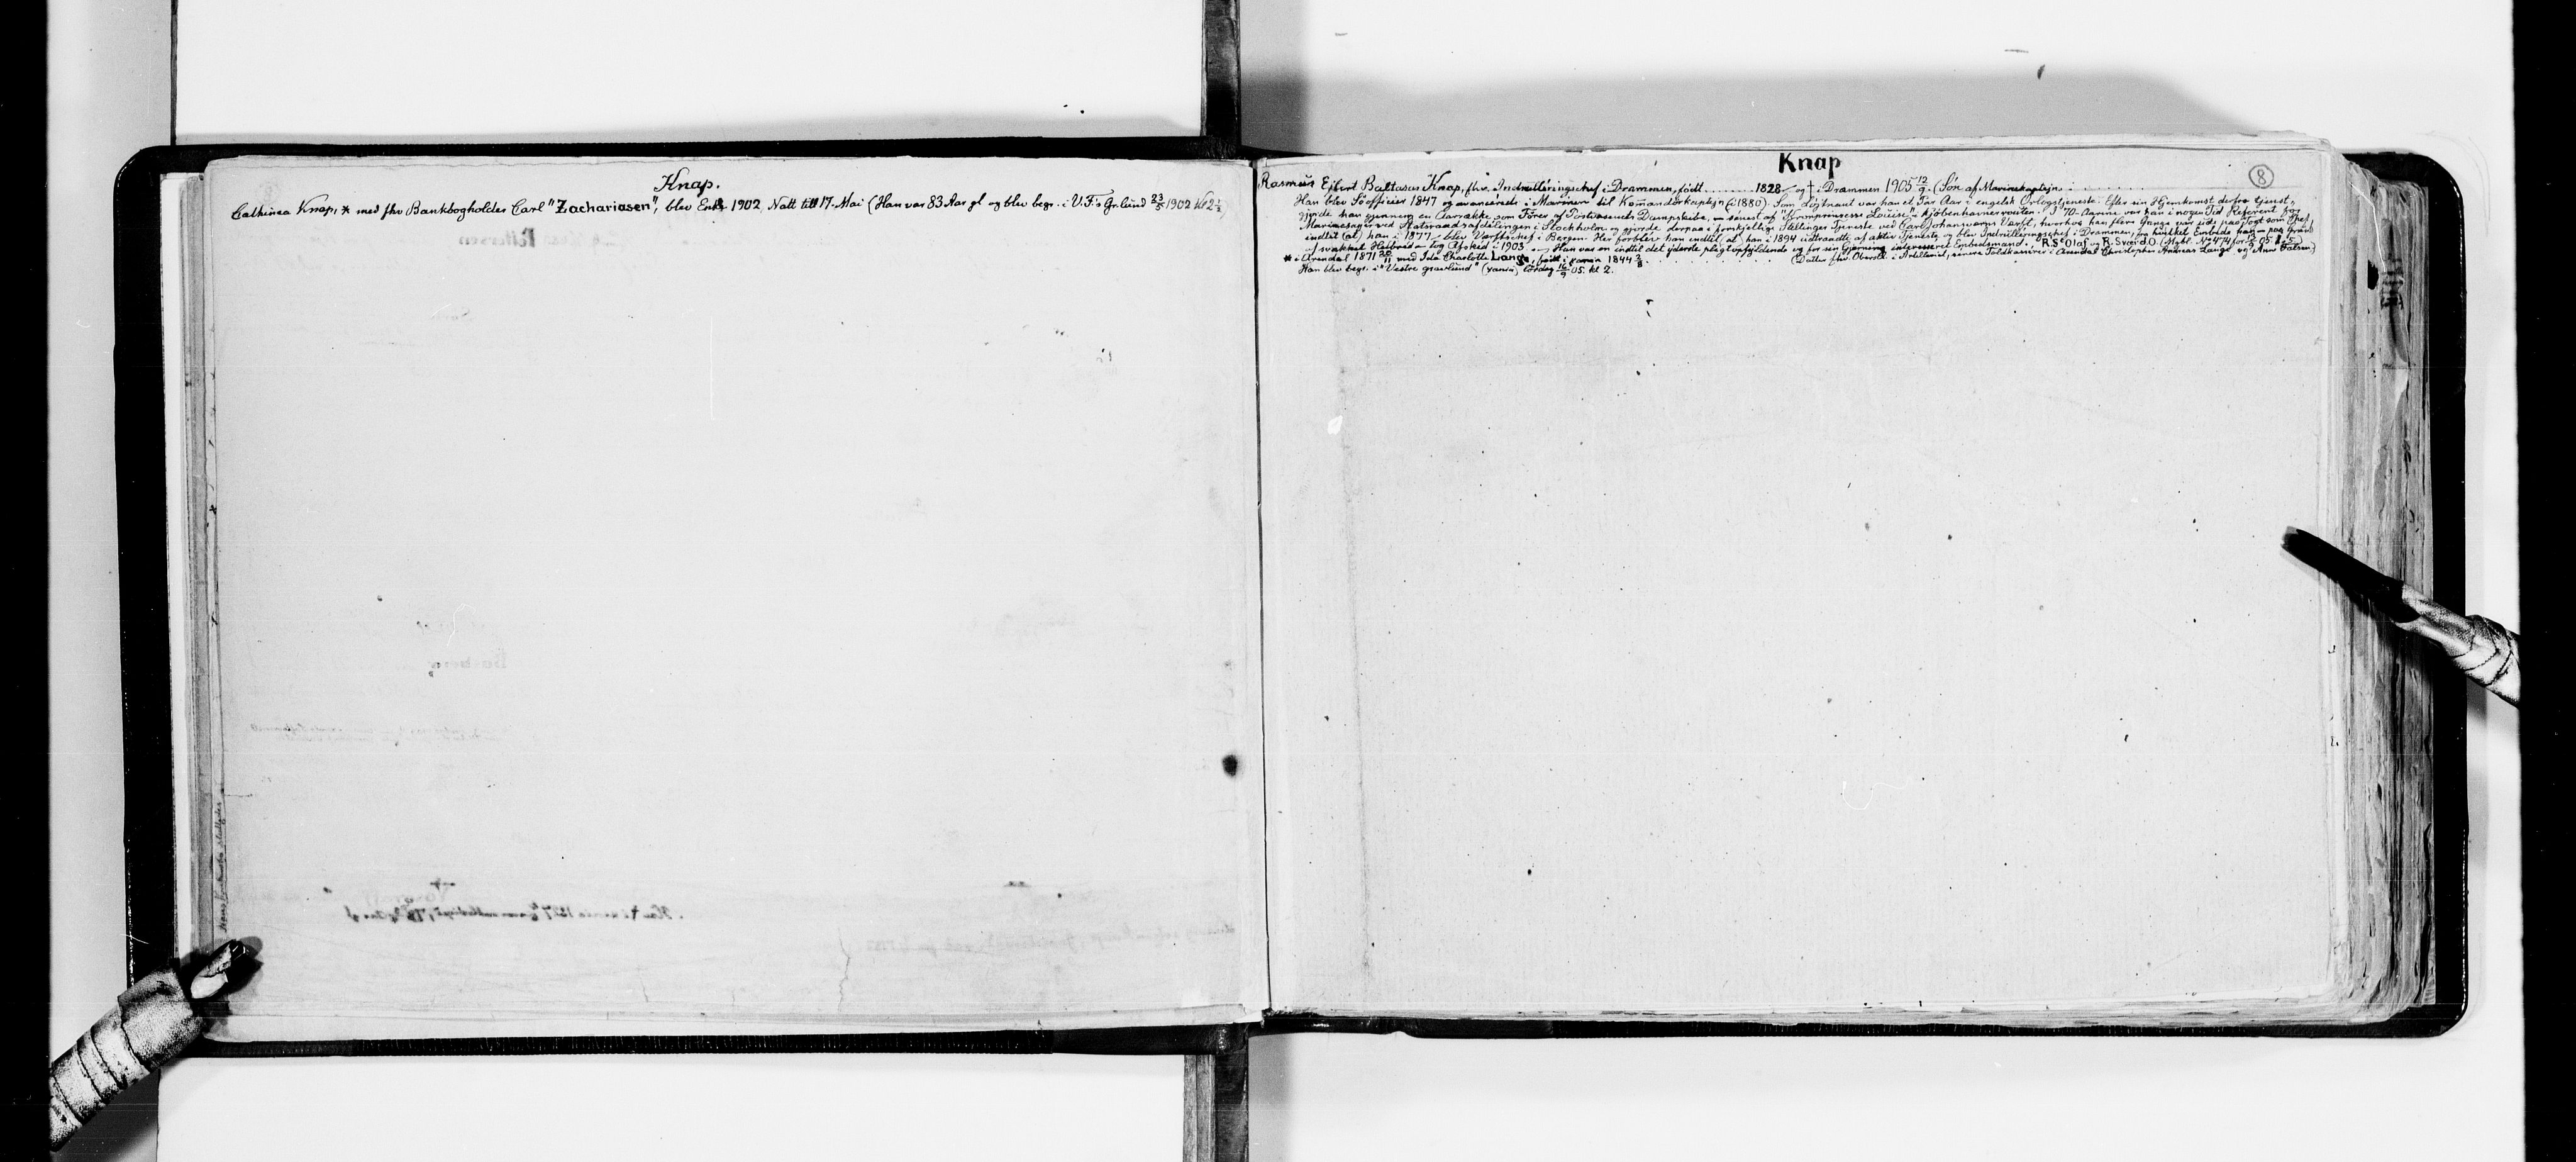 Knap.
Cathinca Knap, * med fhv Bankbogholder Carl "Zachariasen", blev Enke 1902 Natt till 17. Mai (Han var 83 Aar gl og blev begr. i V.F.'s Gr.lund 23/5 1902 Kl 2½
Knap
8
Rasmus Ejbert Baltasar Knap, fhv. Indrulleringschef i Drammen, født ........ 1828 og † i Drammen 1905 12/9. (Søn af Marinekaptejn
Han blev Søofficier 1847 og avancerede i Marinen til Komandørkaptejn (i 1880). Som Løjtnant var han et Par Aar i engelsk Orlogstjeneste. Efter sin Hjemkomst derfra tjenst-
gjorde han gjennem en Aarrække som Fører af Postvæsenets Dampskibe, senest af "Kronprinsesse Louise" i Kjøbenhavnerrouten. I 70-Aarene var han i nogen Tid Referent for
Marinesager ved Statsraadsafdelingen i Stockholm og gjorde derpaa i forskjellige Stillinger Tjeneste ved Carl Johansværns Værft, hvorhos han flere Gange var ude paa Togt som Chef,
indtil (at) han i 1877 blev Værftschef i Bergen. Her forblev han indtil at han i 1894 udtraadte af aktiv Tjeneste og blev Indrulleringschef i Drammen, fra hvilket Embede han paa Grund
af svækket Helbred tog Afsked i 1903. Han var en indtil det yderste pligtopfyldende og for sin Gjerning interesseret Embedsmand. R. St Olaf og R. Sværd.O. (Mgbl. No 474 for 13/9 05
* i Arendal 1871 20/11 med Ida Charlotte Lange, født i 1844 2/8. (Datter fhv. Oberstl. i Artilleriet, senere Toldkasserer i Arendal Christopher Andreas Lange og Anne Falsen)
Han blev begr. i "Vestre gravlund" (Xania) Lørdag 16/9 05. kl 2.